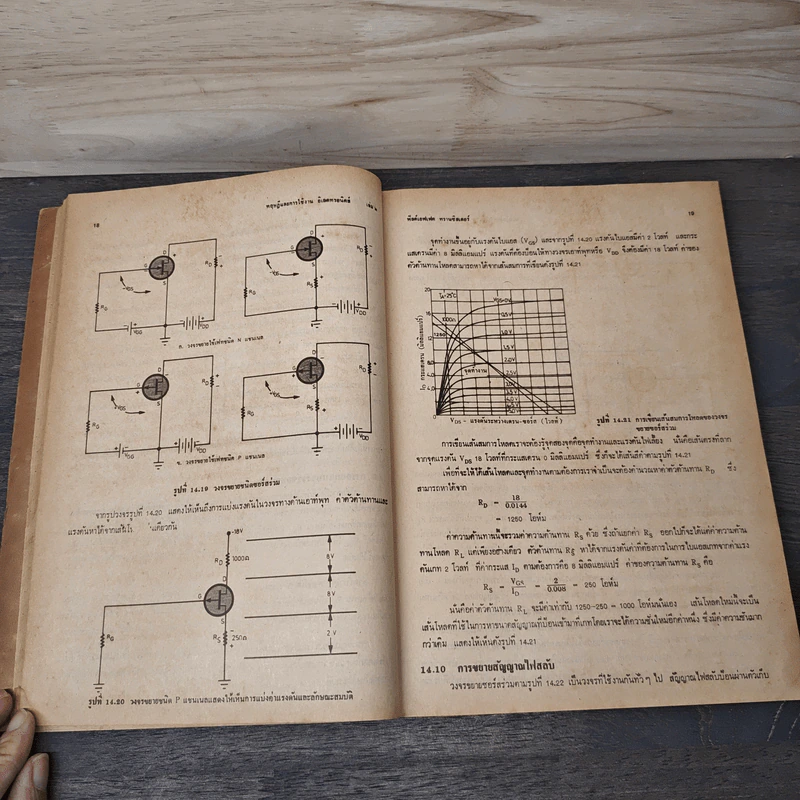 18
ทฤษฎีและการใช้งาน อิเลคทรอนิคส์ เล่ม ๒
D
G
S
R_D
R_G
V_GS
V_GG
V_DD
ก. วงจรขยายใช้เฟทชนิด N แชนเนล
D
G
S
R_D
R_G
R_S
V_GS
V_DD
ข. วงจรขยายใช้เฟทชนิด P แชนเนล
รูปที่ 14.19 วงจรขยายชนิดซอร์สร่วม
จากรูปวงจรรูปที่ 14.20 แสดงให้เห็นถึงการแบ่งแรงดันในวงจรทางด้านเอาท์พุท ค่าตัวต้านทานและ
แรงดันหาได้จากเส้นโ
-18V
R_D 1000Ω
D
G
S
R_G
R_S 250Ω
8 V
8 V
2 V
รูปที่ 14.20 วงจรขยายชนิด P แชนเนลแสดงให้เห็นการแบ่งค่าแรงดันและลักษณะสมบัติ
ฟิลด์เอฟเฟค ทรานซิสเตอร์
19
จุดทำงานขึ้นอยู่กับแรงดันไบแอส (V_GS) และจากรูปที่ 14.20 แรงดันไบแอสมีค่า 2 โวลท์ และกระ
แสเดรนมีค่า 8 มิลลิแอมแปร์ แรงดันที่ต้องป้อนให้ทางวงจรเอาท์พุทหรือ V_DD จึงต้องมีค่า 18 โวลท์ ค่าของ
ตัวต้านทานโหลดสามารถหาได้จากเส้นสมการที่เขียนดังรูปที่ 14.21
I_D กระแสเดรน (มิลลิแอมแปร์)
20
16
12
8.0
4.0
0
V_GS=0V
0.5V
1.0 V
1.5 V
2.0V
2.5V
จุดทำงาน
V_DS - แรงดันระหว่างเดรน-ซอร์ส (โวลท์)
รูปที่ 14.21 การเขียนเส้นสมการโหลดของวงจร
ขยายซอร์สร่วม
การเขียนเส้นสมการโหลดเราจะต้องรู้จุดสองจุดคือจุดทำงานและแรงดันไฟเลี้ยง นั่นคือเส้นตรงที่ลาก
จากจุดแรงดัน V_DS 18 โวลท์ที่กระแสเดรน 0 มิลลิแอมแปร์ ซึ่งก็จะได้เส้นสีดำตามรูปที่ 14.21
เพื่อที่จะให้ได้เส้นโหลดและจุดทำงานตามต้องการเราจำเป็นจะต้องคำนวณหาค่าตัวต้านทาน R_D ซึ่ง
สามารถหาได้จาก
R_D = 18/0.0144
= 1250 โอห์ม
ค่าความต้านทานนี้จะรวมค่าความต้านทาน R_S ด้วย ซึ่งถ้าแยกค่า R_S ออกไปก็จะได้แต่ค่าความต้าน
ทานโหลด R_L แต่เพียงอย่างเดียว ตัวต้านทาน R_S หาได้จากแรงดันค่าที่ต้องการในการไบแอสเกทจากค่าแรง
ดันเกท 2 โวลท์ ที่ค่ากระแส I_D ตามต้องการคือ 8 มิลลิแอมแปร์ ค่าของความต้านทาน R_S คือ
R_S = V_GS/I_D = 2/0.008 = 250 โอห์ม
นั่นคือค่าตัวต้านทาน R_L จะมีค่าเท่ากับ 1250-250 = 1000 โอห์มนั่นเอง เส้นโหลดใหม่นี้จะเป็น
เส้นโหลดที่ใช้ในการหาขนาดสัญญาณที่ป้อนเข้ามาที่เกทโดยเราจะได้ความชันใหม่อีกค่าหนึ่ง ซึ่งมีค่าความชันมาก
กว่าเดิม แสดงให้เห็นดังรูปที่ 14.21
14.10 การขยายสัญญาณไฟสลับ
วงจรขยายซอร์สร่วมตามรูปที่ 14.22 เป็นวงจรที่ใช้งานกันทั่วๆ ไป สัญญาณไฟสลับป้อนผ่านตัวเก็บ